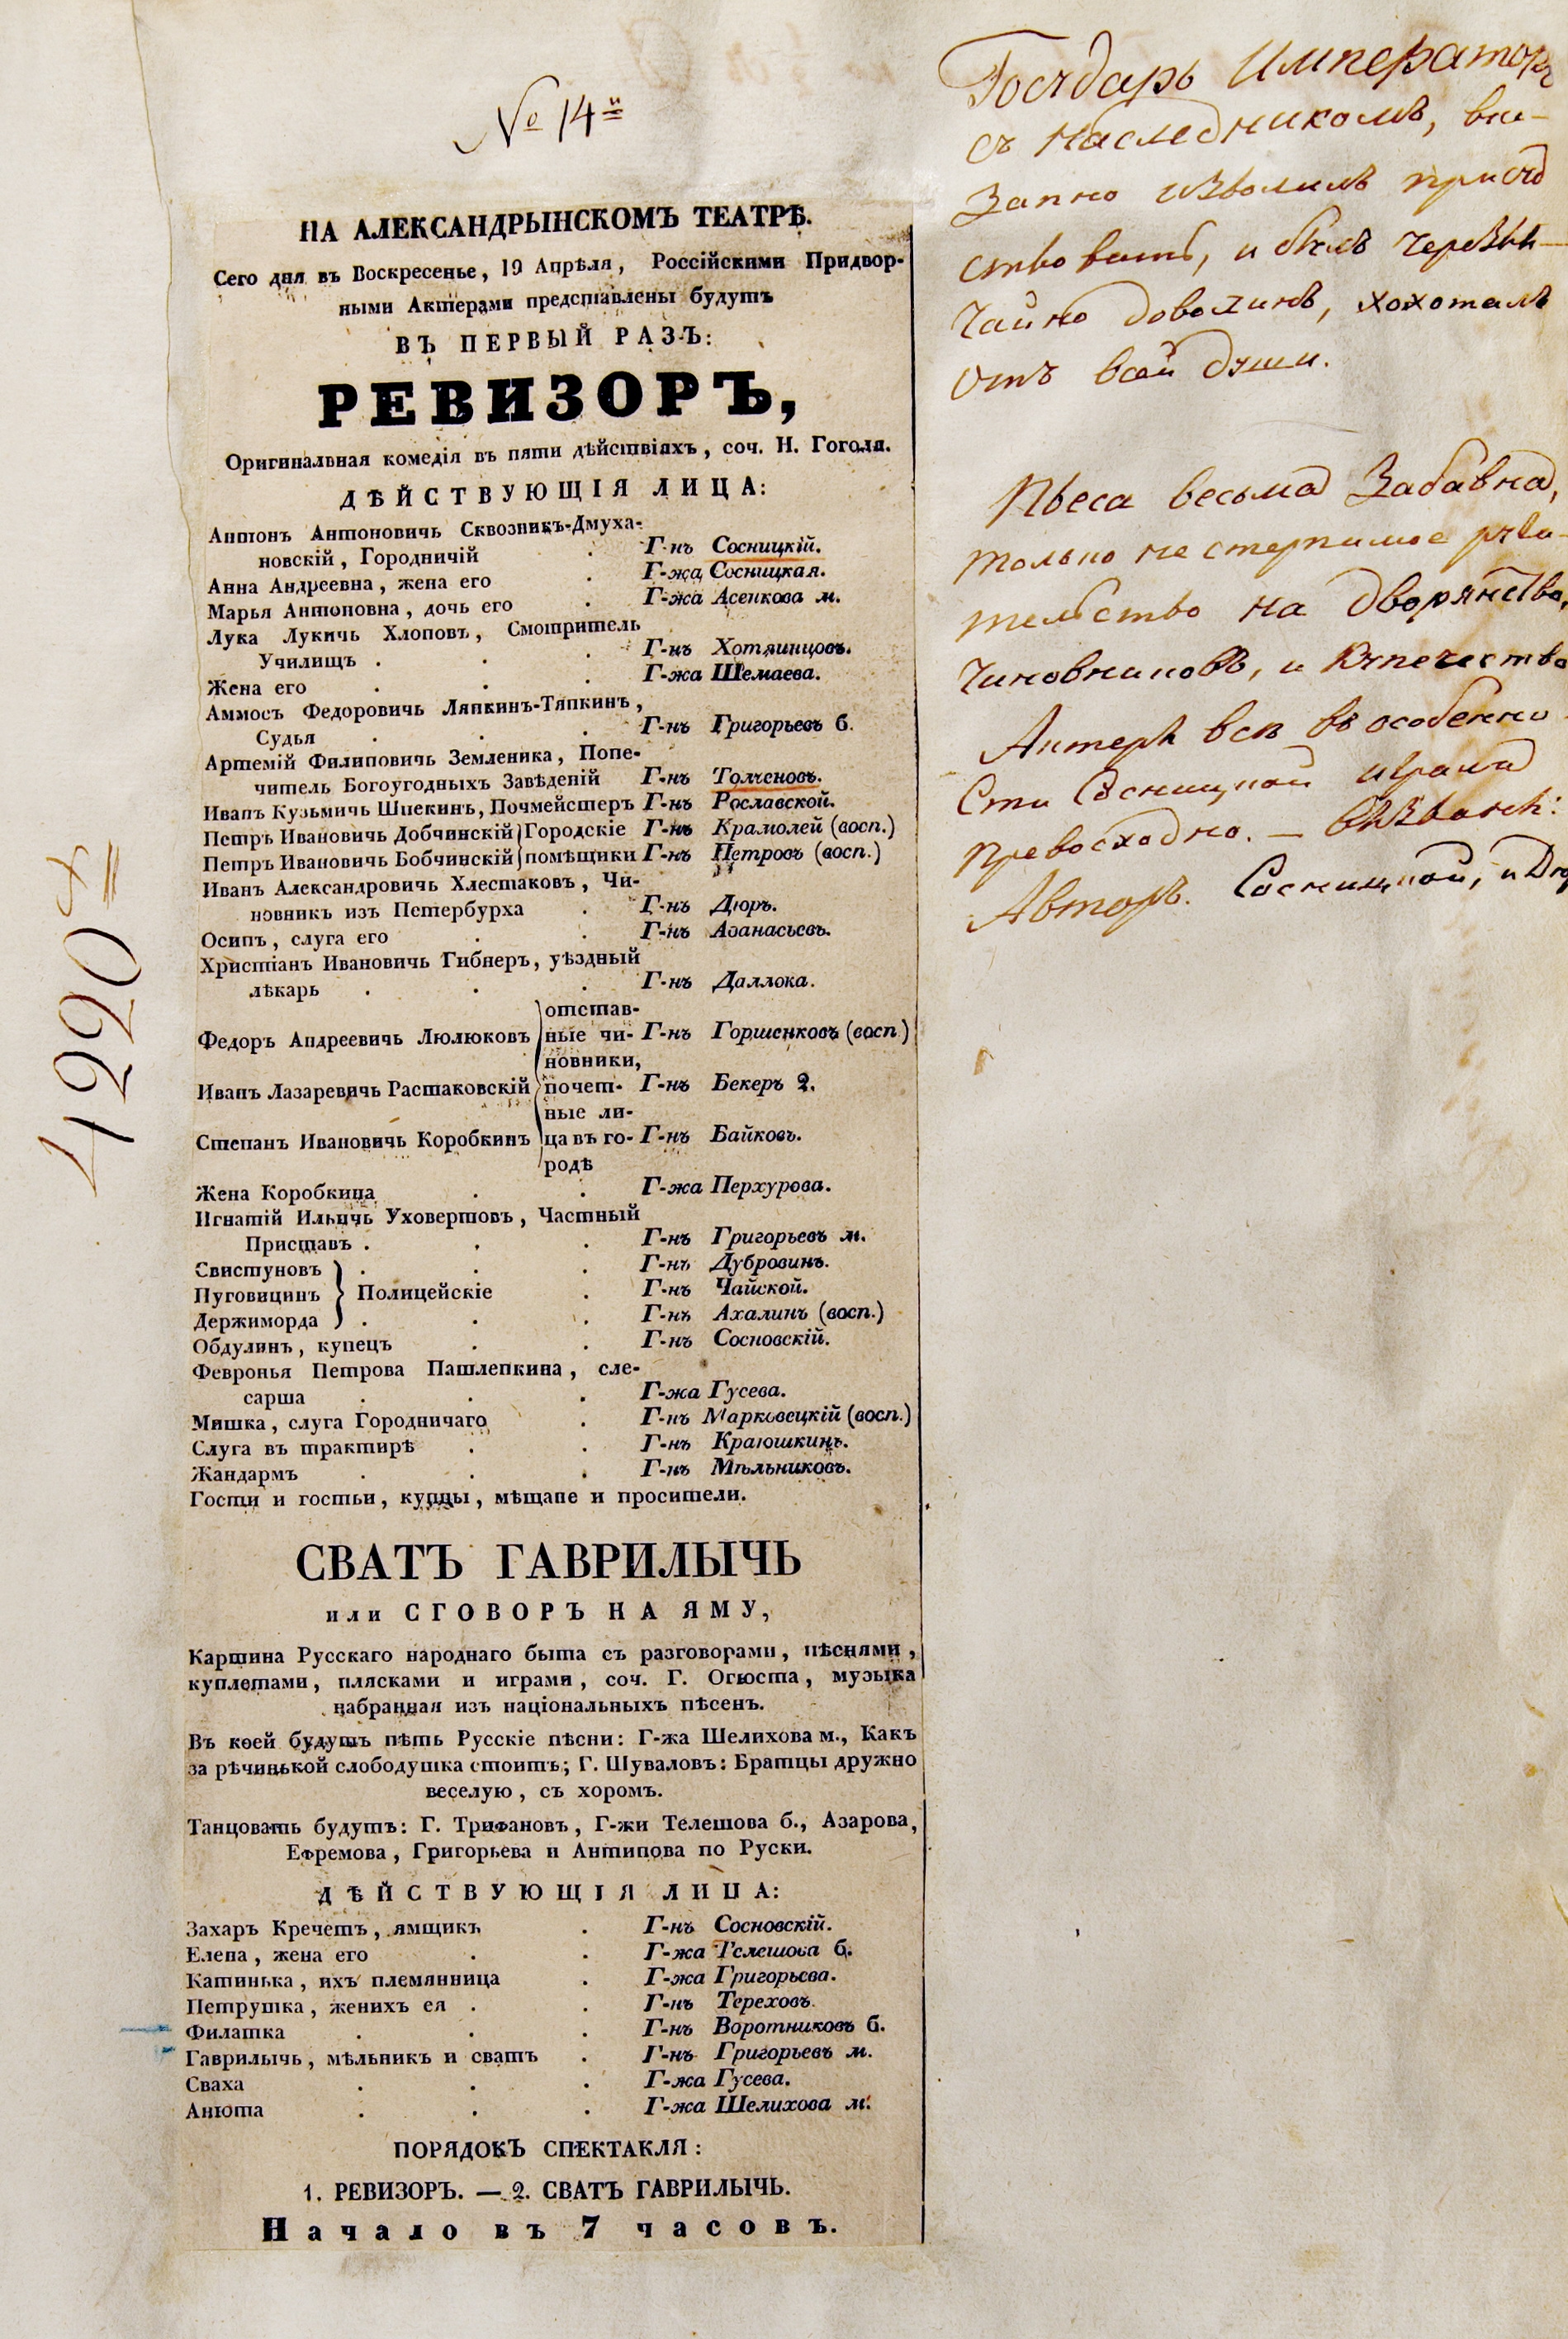 № 14й
НА АЛЕКСАНДРЫНСКОМЪ ТЕАТРѢ.
Сего дня въ Воскресенье, 19 Апрѣля, Россійскими Придвор-
ными Актерами представлены будутъ
ВЪ ПЕРВЫЙ РАЗЪ:
РЕВИЗОРЪ,
Оригинальная комедія въ пяти дѣйствіяхъ, соч. Н. Гоголя.
ДѢЙСТВУЮЩІЯ ЛИЦА:
Антонъ Антоновичь Сквозникъ-Дмуха-
новскій, Городничій . Г-нъ Сосницкій.
Анна Андреевна, жена его . Г-жа Сосницкая.
Марья Антоновна, дочь его . Г-жа Асенкова м.
Лука Лукичь Хлоповъ, Смотритель
Училищъ . . . Г-нъ Хотяинцовъ.
Жена его . . . Г-жа Шемаева.
Аммосъ Федоровичь Ляпкинъ-Тяпкинъ,
Судья . . . Г-нъ Григорьевъ б.
Артемій Филиповичь Земленика, Попе-
читель Богоугодныхъ Завѣденій Г-нъ Толченовъ.
Иванъ Кузьмичь Шпекинъ, Почмейстеръ Г-нъ Рославской.
Петръ Ивановичь Добчинскій } Городскіе Г-нъ Крамолей (восп.)
Петръ Ивановичь Бобчинскій } помѣщики Г-нъ Петровъ (восп.)
Иванъ Александровичь Хлестаковъ, Чи-
новникъ изъ Петербурха . Г-нъ Дюръ.
Осипъ, слуга его . . Г-нъ Аѳанасьевъ.
Христіанъ Ивановичь Гибнеръ, уѣздный
лѣкарь . . . Г-нъ Даллока.
отстав-
Федоръ Андреевичь Люлюковъ ные чи- Г-нъ Горшенковъ (восп.)
новники,
Иванъ Лазаревичь Растаковскій почет- Г-нъ Бекеръ 2.
ные ли-
Степанъ Ивановичь Коробкинъ ца въ го- Г-нъ Байковъ.
родѣ
Жена Коробкина . . Г-жа Перхурова.
Игнатій Ильичь Уховертовъ, Частный
Приставъ . . . Г-нъ Григорьевъ м.
Свистуновъ } . . . Г-нъ Дубровинъ.
Пуговицинъ } Полицейскіе . Г-нъ Чайской.
Держиморда } . . . Г-нъ Ахалинъ (восп.)
Обдулинъ, купецъ . . Г-нъ Сосновскій.
Февронья Петрова Пашлепкина, сле-
сарша . . . Г-жа Гусева.
Мишка, слуга Городничаго . Г-нъ Марковецкій (восп.)
Слуга въ трактирѣ . . Г-нъ Краюшкинъ.
Жандармъ . . . Г-нъ Мѣльниковъ.
Гости и гостьи, купцы, мѣщане и просители.
СВАТЪ ГАВРИЛЫЧЬ
или СГОВОРЪ НА ЯМУ,
Картина Русскаго народнаго быта съ разговорами, пѣснями,
куплетами, плясками и играми, соч. Г. Огюста, музыка
набранная изъ національныхъ пѣсенъ.
Въ коей будутъ пѣть Русскіе пѣсни: Г-жа Шелихова м., Какъ
за рѣчинькой слободушка стоитъ; Г. Шуваловъ: Братцы дружно
веселую, съ хоромъ.
Танцовать будутъ: Г. Трифановъ, Г-жи Телешова б., Азарова,
Ефремова, Григорьева и Антипова по Руски.
ДѢЙСТВУЮЩІЯ ЛИЦА:
Захаръ Кречетъ, ямщикъ . Г-нъ Сосновскій.
Елена, жена его . . Г-жа Телешова б.
Катинька, ихъ племянница . Г-жа Григорьева.
Петрушка, женихъ ея . . Г-нъ Тереховъ.
Филатка . . . Г-нъ Воротниковъ б.
Гаврилычь, мѣльникъ и сватъ . Г-нъ Григорьевъ м.
Сваха . . . Г-жа Гусева.
Анюта . . . Г-жа Шелихова м.
ПОРЯДОКЪ СПЕКТАКЛЯ:
1. РЕВИЗОРЪ. — 2. СВАТЪ ГАВРИЛЫЧЬ.
Начало въ 7 часовъ.
4220 х
Государь Императоръ
съ Наследникомъ, вне-
запно изволилъ присуд
ствовать, и былъ черезвы-
чайно доволинъ, хохоталъ
отъ всей души.
Пьеса весьма забавна,
только нестерпимое руга-
тельство на дворянство,
чиновниковъ, и купечество
Актеры все въ особенно-
сти Сосницкой играли
превосходно. — Вызваны:
Авторъ. Сосницкой, и Дюр